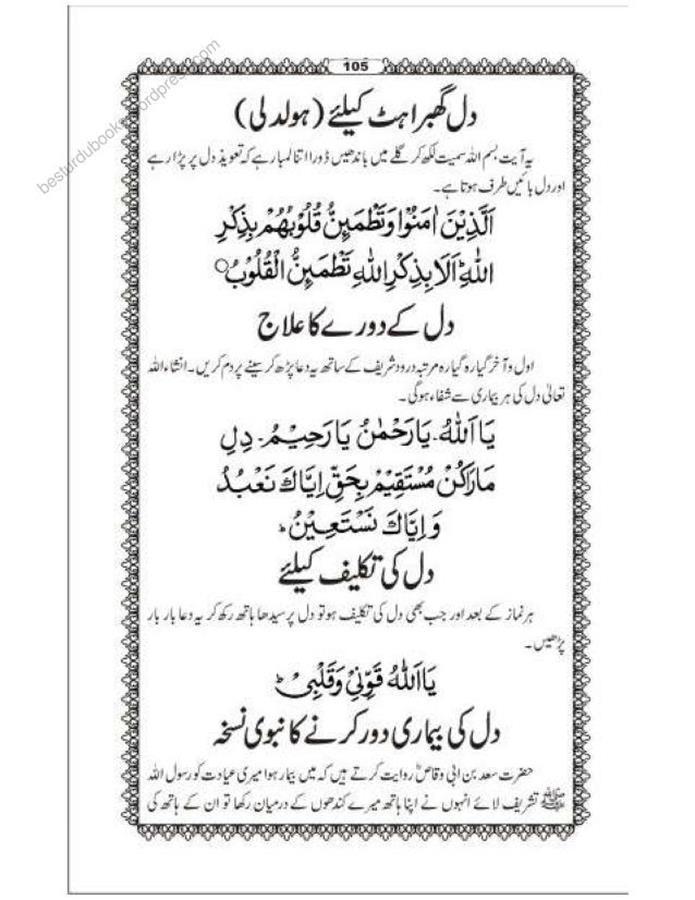 105
دل گھبراہٹ کیلئے (ہولدلی)
یہ آیت بسم اللہ سمیت لکھ کر گلے میں باندھیں ڈورا اتنا لمبا رہے کہ تعویذ دل پر پڑا رہے
اور دل بائیں طرف ہوتا ہے۔
اَلَّذِيْنَ اٰمَنُوْا وَتَطْمَئِنُّ قُلُوْبُهُمْ بِذِكْرِ
اللّٰهِ اَلَا بِذِكْرِ اللّٰهِ تَطْمَئِنُّ الْقُلُوْبُ○
دل کے دورے کا علاج
اول و آخر گیارہ گیارہ مرتبہ درود شریف کے ساتھ یہ دعا پڑھ کر سینے پر دم کریں۔ انشاء اللہ
تعالیٰ دل کی ہر بیماری سے شفاء ہوگی۔
يَا اَللّٰهُ۔ يَارَحْمٰنُ يَارَحِيْمُ۔ دِلِ
مَارَاكُنْ مُسْتَقِيْم بِحَقِّ اِيَّاكَ نَعْبُدُ
وَاِيَّاكَ نَسْتَعِيْنُ۔
دل کی تکلیف کیلئے
ہر نماز کے بعد اور جب بھی دل کی تکلیف ہو تو دل پر سیدھا ہاتھ رکھ کر یہ دعا بار بار
پڑھیں۔
يَا اَللّٰهُ قَوِّنِيْ وَقَلْبِيْ ط
دل کی بیماری دور کرنے کا نبوی نسخہ
حضرت سعد بن ابی وقاصؓ روایت کرتے ہیں کہ میں بیمار ہوا میری عیادت کو رسول اللہ
ﷺ تشریف لائے انہوں نے اپنا ہاتھ میرے کندھوں کے درمیان رکھا تو ان کے ہاتھ کی
besturdubooks.wordpress.com